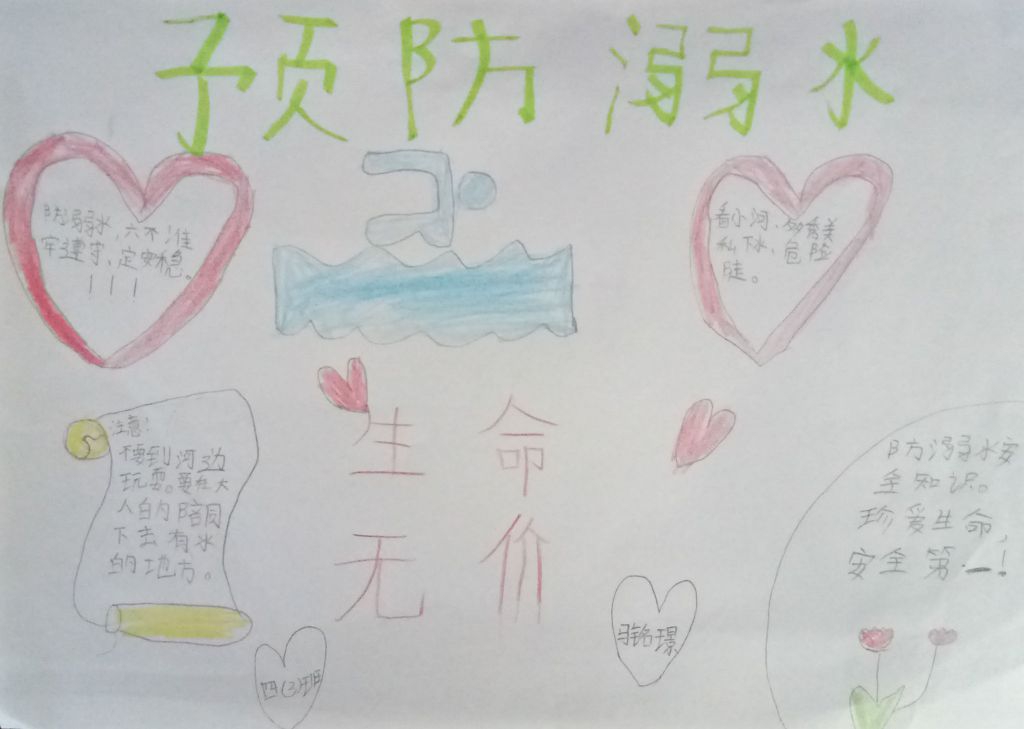 预防溺水
防溺水,六不准
牢遵守、定安稳。
!!!
看小河、多秀美
私下水、危险
陡。
注意!
不要到河边
玩耍。要在大
人白内陪同
下去有水
的地方。
生命
无价
防溺水安
全知识。
珍爱生命,
安全第一!
四(3)班
铭璟